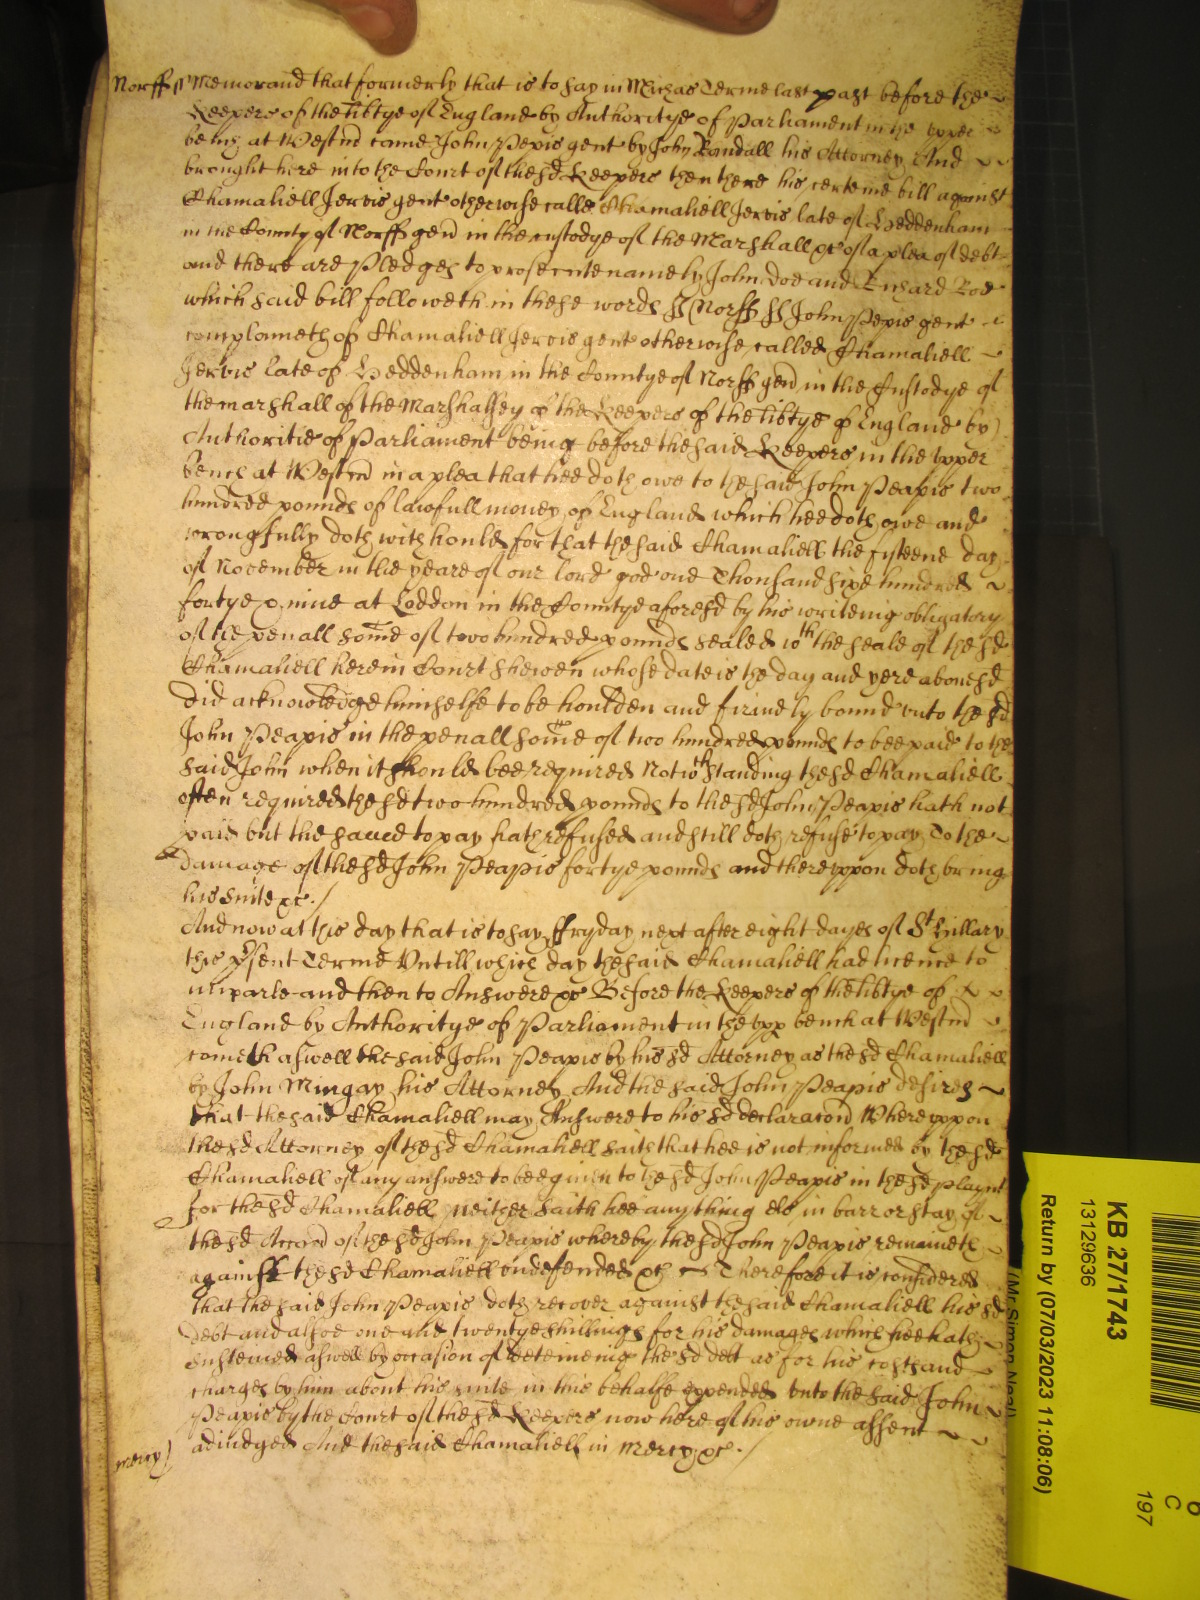 Norff ss Memorand that formerly that is to say in Michas Terme last past before the
Keepers of the libtye of England by Authoritye of Parliament in the upper
bench at Westm came John Pepis gent by John Randall his Attorney And
brought here into the Court of the sd Keepers then there his certeine bill against
Thamaliell Jervis gent otherwise called Thamaliell Jervis late of Heddenham
in the County of Norff gen in the custodye of the Marshall &c of a plea of debt
and there are Pledges to prosecute namely John Doe and Richard Roe
which said bill followeth in these words ss Norff ss John Pepis gent
complaineth of Thamaliell Jervis gent otherwise called Thamaliell
Jervis late of Heddenham in the Countye of Norff gen in the Custodye of
the marshall of the Marshalsey of the Keepers of the libtye of England by
Authoritie of Parliament being before the said Keepers in the upper
bench at Westm in a plea that hee doth owe to the said John Peapis two
hundred pounds of lawfull money of England which hee doth owe and
wrongfully doth withhould for that the said Thamaliell the fifteene day
of November in the yeare of our lord god one Thousand sixe hundred
fortye nine at Loddon in the Countye aforesd by his writeing obligatory
of the penall some of two hundred pounds sealed wth the seale of the sd
Thamaliell here in Court shewen whose date is the day and yere abovesd
did acknowledge himselfe to be houlden and firmely bound unto the sd
John Peapis in the penall some of two hundred pounds to bee paid to the
said John when it should bee required Notwthstanding the sd Thamaliell
often required the sd two hundred pounds to the sd John Peapis hath not
paid but the same to pay hath refused and still doth refuse to pay To the
damage of the sd John Peapis fortye pounds and thereuppon doth bring
his suite &c
And now at this day that is to say Fryday next after eight dayes of St Hillary
this psent Terme Untill which day the said Thamaliell had licence to
imparle and then to Answere &c Before the Keepers of the libtye of
England by Authoritye of Parliament in the upp bench at Westm
cometh aswell the said John Peapis by his sd Attorney as the sd Thamaliell
by John Mingay his Attorney And the said John Peapis desires
that the said Thamaliell may Answere to his sd declaracon Whereuppon
the sd Attorney of the sd Thamaliell saith that hee is not informed by the sd
Thamaliell of any answere to bee given to the sd John Peapis in the sd playnt
for the sd Thamaliell neither saith hee any thing els in barr or stay of
the sd Accord of the sd John Peapis whereby the sd John Peapis remaineth
against the sd Thamaliell undefended &c Therefore it is considered
that the said John Peapis doth recover against the said Thamaliell his sd
debt and alsoe one and twentye shillings for his damages which hee hath
susteined aswell by occasion of deteineing the sd debt as for his costs and
charges by him about his suite in this behalfe expended unto the said John
Peapis by the Court of the sd Keepers now here of his owne assent
adiudged And the said Thamaliell in mercy &c
mercy
KB 27/1743
13129636
Return by (07/03/2023 11:08:06)
(Mr Simon Neal)
C
197